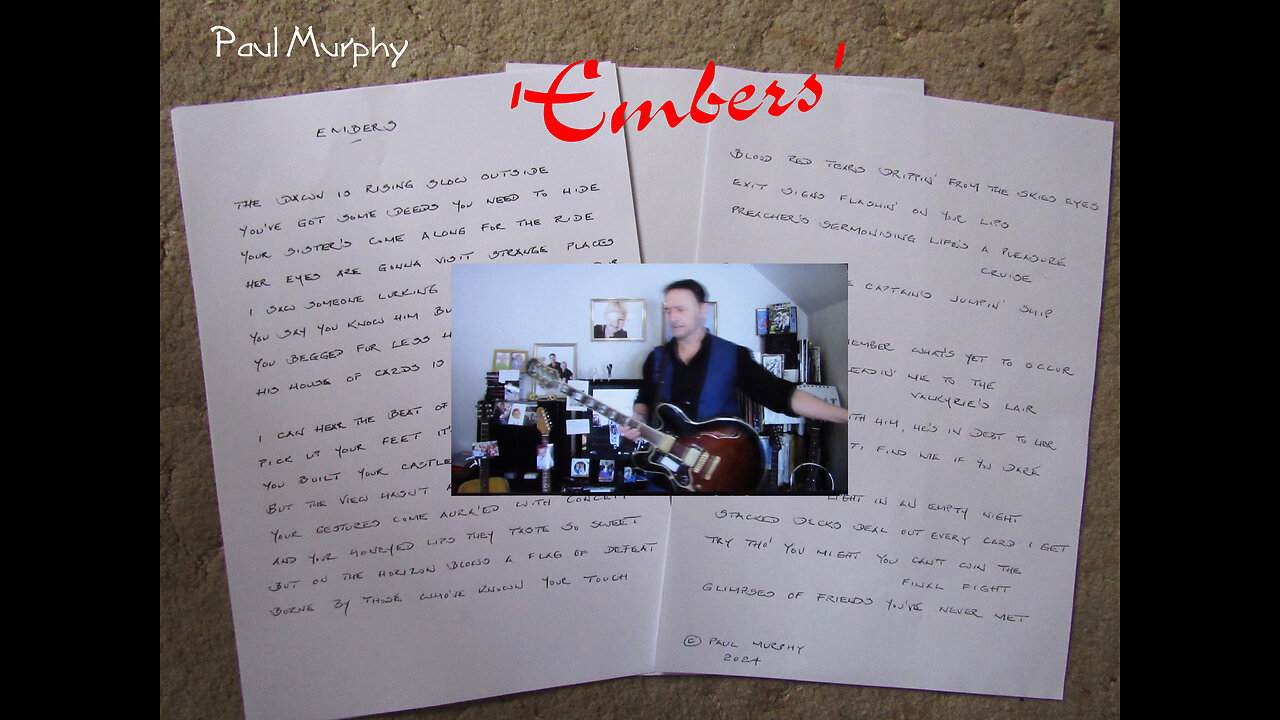 Paul Murphy
'Embers'
EMBERS
THE DAWN IS RISING SLOW OUTSIDE
YOU'VE GOT SOME DEEDS YOU NEED TO HIDE
YOUR SISTER'S COME ALONG FOR THE RIDE
HER EYES ARE GONNA VISIT STRANGE PLACES
I SAW SOMEONE LURKING
YOU SAY YOU KNOW HIM
YOU BEGGED FOR LESS
HIS HOUSE OF CARDS IS
I CAN HEAR THE BEAT OF
PICK UP YOUR FEET
YOU BUILT YOUR CASTLE
BUT THE VIEW HASN'T
YOUR GESTURES COME AURA'ED WITH CONCEIT
AND YOUR HONEYED LIPS THEY TASTE SO SWEET
BUT ON THE HORIZON BLOWS A FLAG OF DEFEAT
BORNE BY THOSE WHO'VE KNOWN YOUR TOUCH
BLOOD RED TEARS DRIPPIN' FROM THE SKIES EYES
EXIT SIGNS FLASHIN' ON YOUR LIPS
PREACHER'S SERMONISING LIFE'S A PLEASURE
CRUISE
CAPTAIN'S JUMPIN' SHIP
WHAT'S YET TO OCCUR
ME TO THE
VALKYRIE'S LAIR
HIM, HE'S IN DEBT TO HER
FIND ME IF YOU DARE
IN AN EMPTY NIGHT
STACKED DECKS DEAL OUT EVERY CARD I GET
TRY THO' YOU MIGHT YOU CAN'T WIN THE
FINAL FIGHT
GLIMPSES OF FRIENDS YOU'VE NEVER MET
© PAUL MURPHY
2024